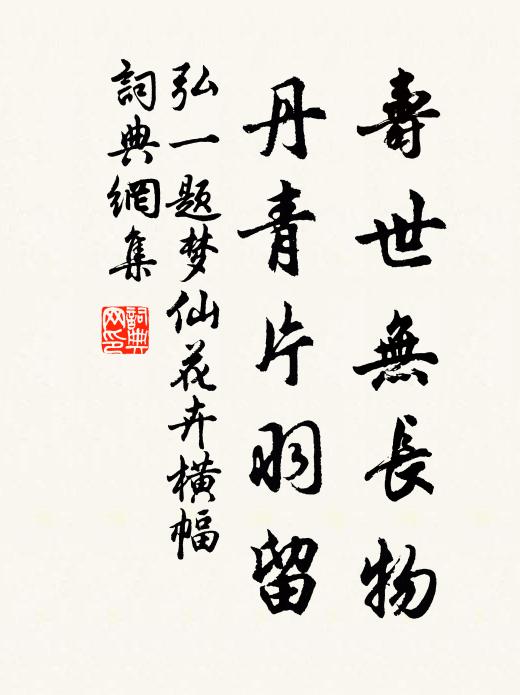 壽世無長物
丹青片羽留
弘一题梦仙花卉橫幅
詞典網集
詞典
网印